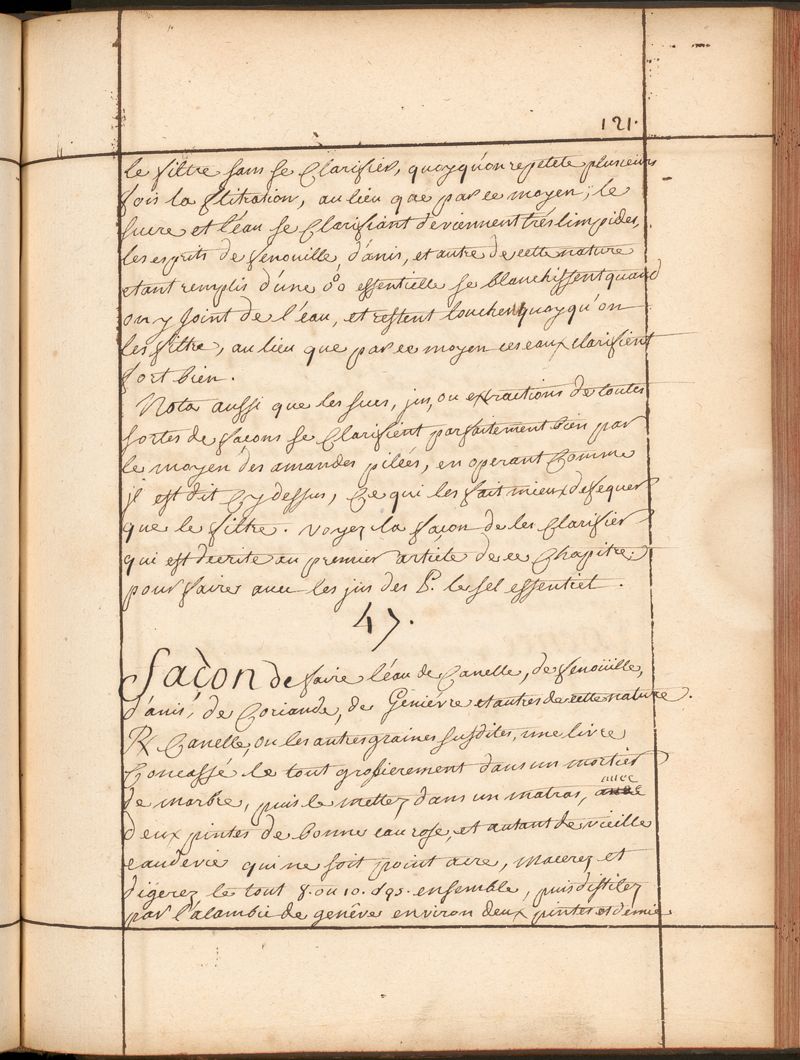 121.
le filtre sans se Clarifier, quoyqu'on repetete plusieurs
fois la flitration, au lieu que par ce moyen; le
sucre et l'eau se Clarifiant deviennent trés limpides,
les esprits de fenouille, d'anis, et autre de cette nature
etant remplis d'une o°o essentielle se blanchissent quand
on y Joint de l'eau, et restent louches quoyqu'on
les filtre, au lieu que par ce moyen ces eaux clarifient
fort bien.
Nota aussi que les sucs, jus, ou extractions de toutes
sortes de facons se Clarifient parfaitement bien par
le moyen des amandes pilées, en operant Comme
jl est dit Cy dessus, Ce qui les fait mieux deféquer
que le filtre. Voyez la façon de les Clarifier
qui est decrite au premier article de ce Chapitre,
pour faire avec les jus des P. le sel essentiel.
47.
Façon de faire l'éau de Canelle, de fenoüille,
d'anis, de Coriande, de Geniévre et autres de cette nature.
℞ Canelle, ou les autres graines susdites, une livre
Concassé le tout grossierement dans un mortier
de marbre, puis le mettez dans un matras, avec
deux pintes de bonne eau rose, et autant de vieille
eau de vie qui ne soit point acre, macerez et
digerez le tout 8. ou 10. drs. ensemble, puis distilez
par l'alambic de genêve environ deux pintes et demie